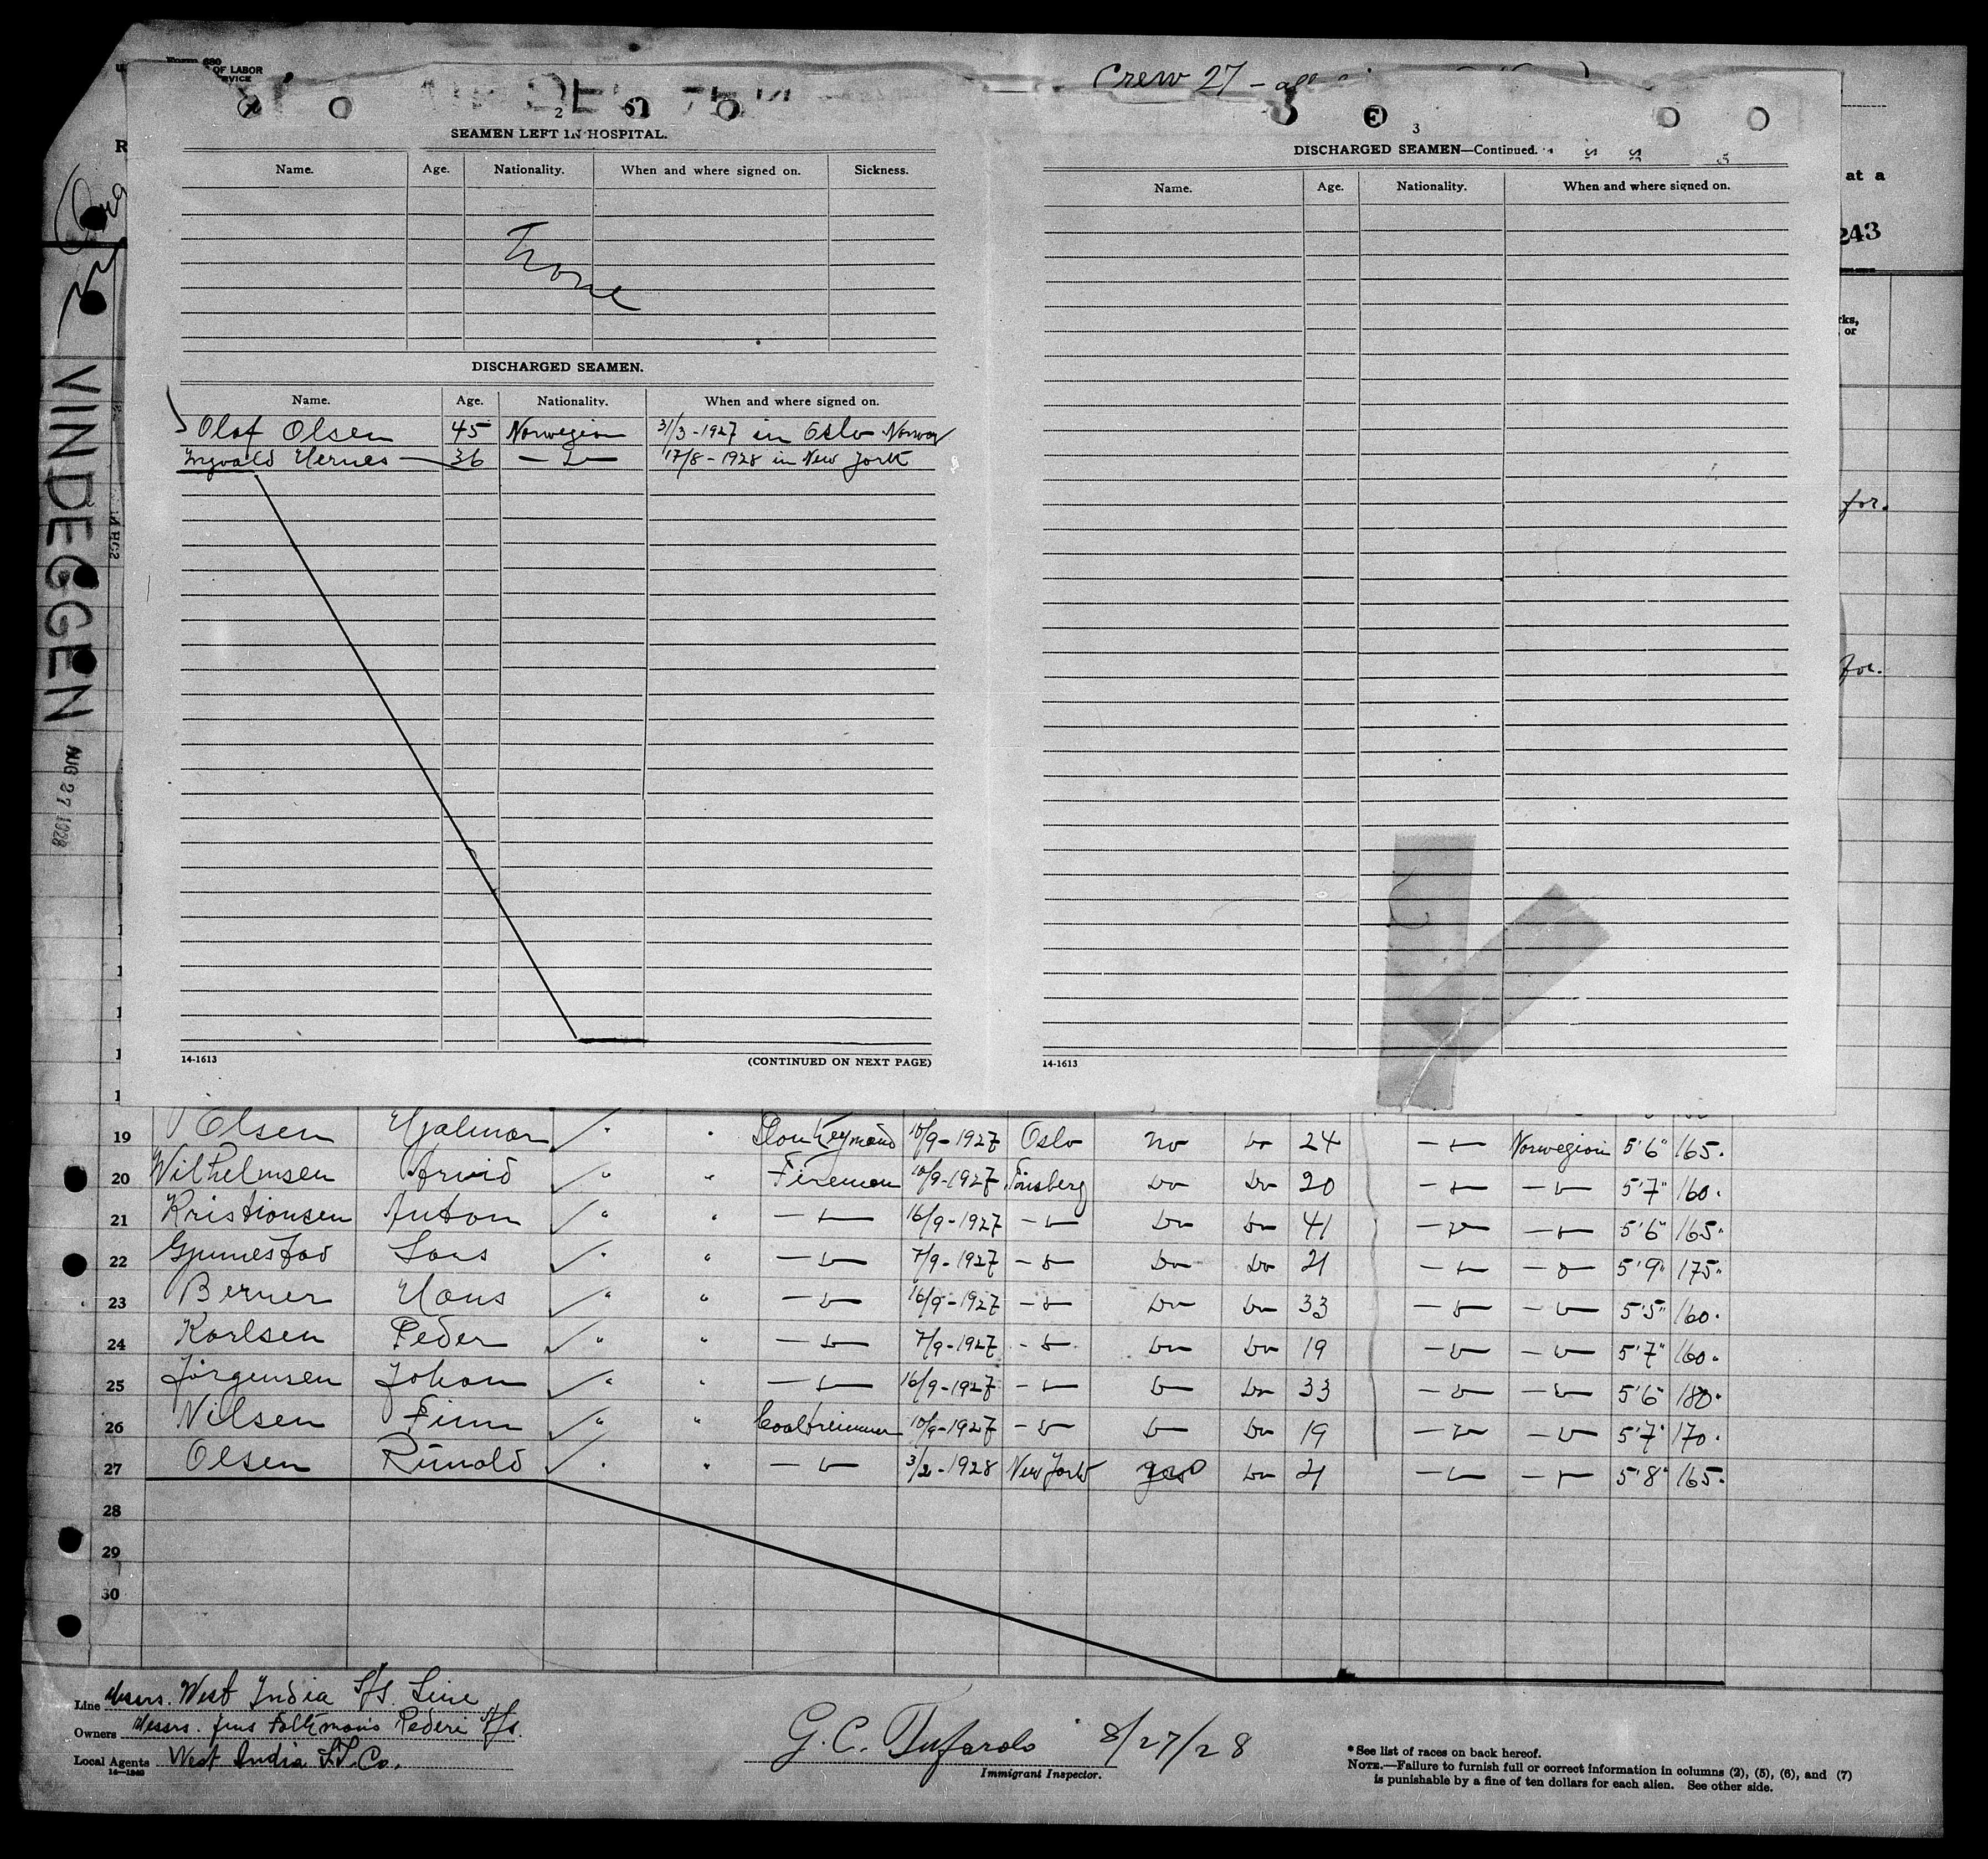 Form 680
OF LABOR
Crew 27 - all
2
SEAMEN LEFT IN HOSPITAL.
Name. Age. Nationality. When and where signed on. Sickness.
None
DISCHARGED SEAMEN.
Name. Age. Nationality. When and where signed on.
Olaf Olsen 45 Norwegian 31/3-1927 in Oslo Norway
Ingvald Hernes 36 17/8-1928 in New York
14-1613 (CONTINUED ON NEXT PAGE)
3
DISCHARGED SEAMEN—Continued.
Name. Age. Nationality. When and where signed on.
14-1613
at a
243
rks,
or
for.
for.
VINDEGGEN
AUG 27 1928
19 Olsen Hjalmar " Donkeymand 10/9-1927 Oslo no do 24 Norwegian 5'6" 165.
20 Wilhelmsen Arvid " " Fireman 10/9-1927 Tönsberg do do 20 5'7" 160.
21 Kristiansen Anton " " 16/9-1927 do do 41 5'6" 165.
22 Lars " " 7/9-1927 do do 21 5'9" 175.
23 Berner Hans " " 16/9-1927 do do 33 5'5" 160.
24 Karlsen Peder " " 7/9-1927 do do 19 5'7" 160.
25 Jörgensen Johan " " 16/9-1927 do do 33 5'6" 180.
26 Nilsen Finn " " Coaltrimmer 10/9-1927 do do 19 5'7" 170.
27 Olsen Rinold " " 3/2-1928 New York yes do 21 5'8" 165.
28
29
30
Line Messrs. West India S/S. Line
Owners Messrs. Rederi A/S.
Local Agents West India S.S. Co.
14—1240
G. C. Tufarolo 8/27/28
Immigrant Inspector.
* See list of races on back hereof.
NOTE.—Failure to furnish full or correct information in columns (2), (5), (6), and (7)
is punishable by a fine of ten dollars for each alien. See other side.